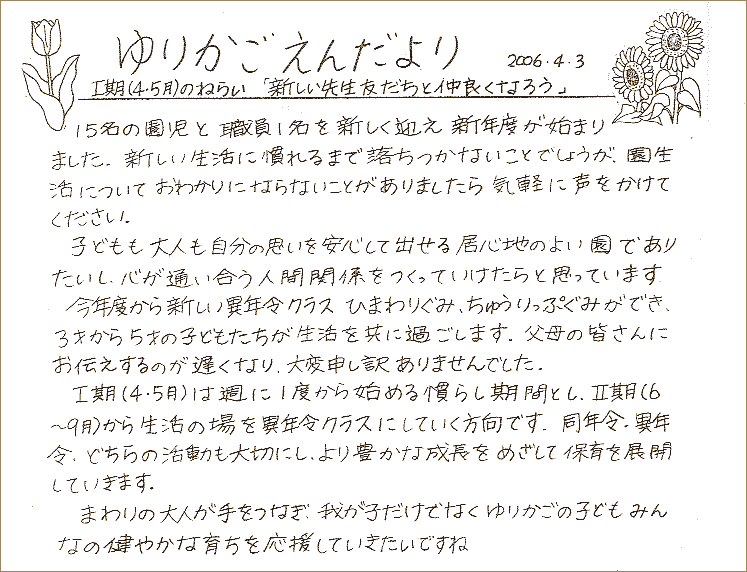 ゆりかごえんだより 2006.4.3
Ⅰ期(4・5月)のねらい 「新しい先生友だちと仲良くなろう」
15名の園児と職員1名を新しく迎え 新年度が始まり
ました。新しい生活に慣れるまで落ちつかないことでしょうが、園生
活について おわかりにならないことがありましたら 気軽に声をかけて
ください。
子どもも大人も自分の思いを安心して出せる居心地のよい園であり
たいし、心が通い合う人間関係をつくっていけたらと思っています。
今年度から新しい異年令クラス ひまわりぐみ、ちゅうりっぷぐみができ、
3才から5才の子どもたちが生活を共に過ごします。父母の皆さんに
お伝えするのが遅くなり、大変申し訳ありませんでした。
Ⅰ期(4・5月)は週に1度から始める慣らし期間とし、Ⅱ期(6
～9月)から生活の場を異年令クラスにしていく方向です。同年令・異年
令、どちらの活動も大切にし、より豊かな成長をめざして保育を展開
していきます。
まわりの大人が手をつなぎ、我が子だけでなくゆりかごの子どもみん
なの健やかな育ちを応援していきたいですね